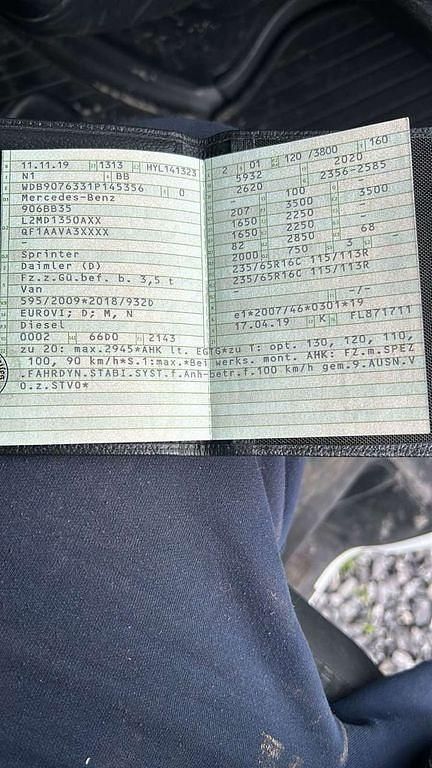 11.11.19 1313 HYL141323
N1 BB
WDB9076331P145356 0
Mercedes-Benz
906BB35
L2MD1350AXX
QF1AAVA3XXXX
-
Sprinter
Daimler (D)
Fz.z.Gü.bef. b. 3,5 t
Van
595/2009*2018/932D
EUROVI; D; M, N
Diesel
0002 66D0 2143
2 01 120 /3800 160
5932 2020
2620 2356-2585
- 100 3500
207 3500 -
1650 2250 -
1650 2250 -
82 2850 68
2000 750 3 -
235/65R16C 115/113R
235/65R16C 115/113R
- -/-
e1*2007/46*0301*19
17.04.19 K FL871711
zu 20: max.2945*AHK lt. EGTG*zu T: opt. 130, 120, 110,
100, 90 km/h*S.1:max.*Bei werks. mont. AHK: FZ.m.SPEZ
.FAHRDYN.STABI.SYST.f.Anh-betr.f.100 km/h gem.9.AUSN.V
O.z.STVO*